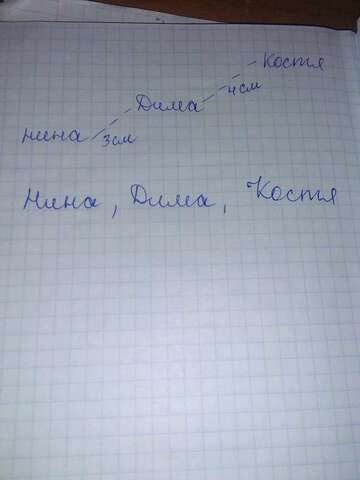 Костя
4 см
Дима
Нина 3 см
Нина, Дима, Костя